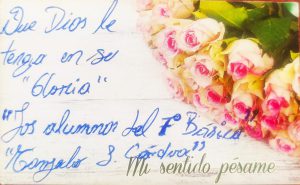 Que Dios le
tenga en su
"Gloria"
"Los alumnos del 7º Básico"
"Gonzalo
Mi sentido pésame